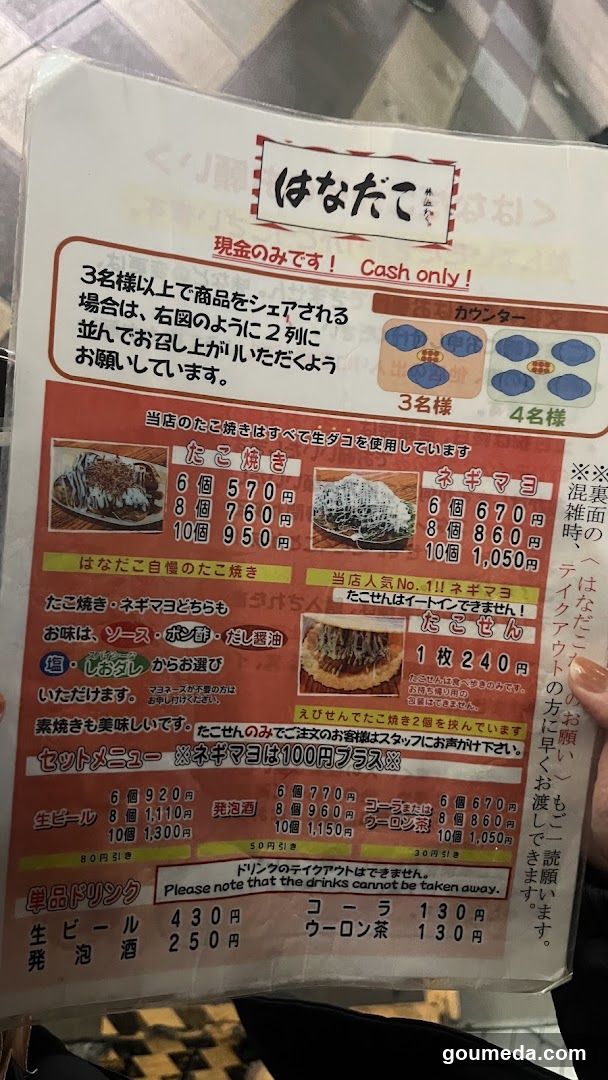 はなだこ
現金のみです! Cash only!
3名様以上で商品をシェアされる
場合は、右図のように2列に
並んでお召し上がりいただくよう
お願いしています。
カウンター
3名様
4名様
当店のたこ焼きはすべて生ダコを使用しています
たこ焼き
6個 570円
8個 760円
10個 950円
はなだこ自慢のたこ焼き
ネギマヨ
6個 670円
8個 860円
10個 1,050円
当店人気No.1!!ネギマヨ
たこせんはイートインできません!
たこ焼き・ネギマヨどちらも
お味は、ソース・ポン酢・だし醤油
塩・しおダレからお選び
いただけます。 マヨネーズが不要の方は
お申し付けください。
素焼きも美味しいです。
たこせん
1枚240円
たこせんは食べ歩きのみです。
お持ち帰り用の
包装はできません。
えびせんでたこ焼き2個を挟んでいます
たこせんのみでご注文のお客様はスタッフにお声がけ下さい。
セットメニュー ※ネギマヨは100円プラス※
生ビール
6個 920円
8個 1,110円
10個 1,300円
80円引き
発泡酒
6個 770円
8個 960円
10個 1,150円
50円引き
コーラまたは
ウーロン茶
6個 670円
8個 860円
10個 1,050円
30円引き
ドリンクのテイクアウトはできません。
Please note that the drinks cannot be taken away.
単品ドリンク
生ビール 430円
発泡酒 250円
コーラ 130円
ウーロン茶 130円
※裏面の〈はなだこからのお願い〉もご一読願います。
※混雑時、テイクアウトの方に早くお渡しできます。
goumeda.com